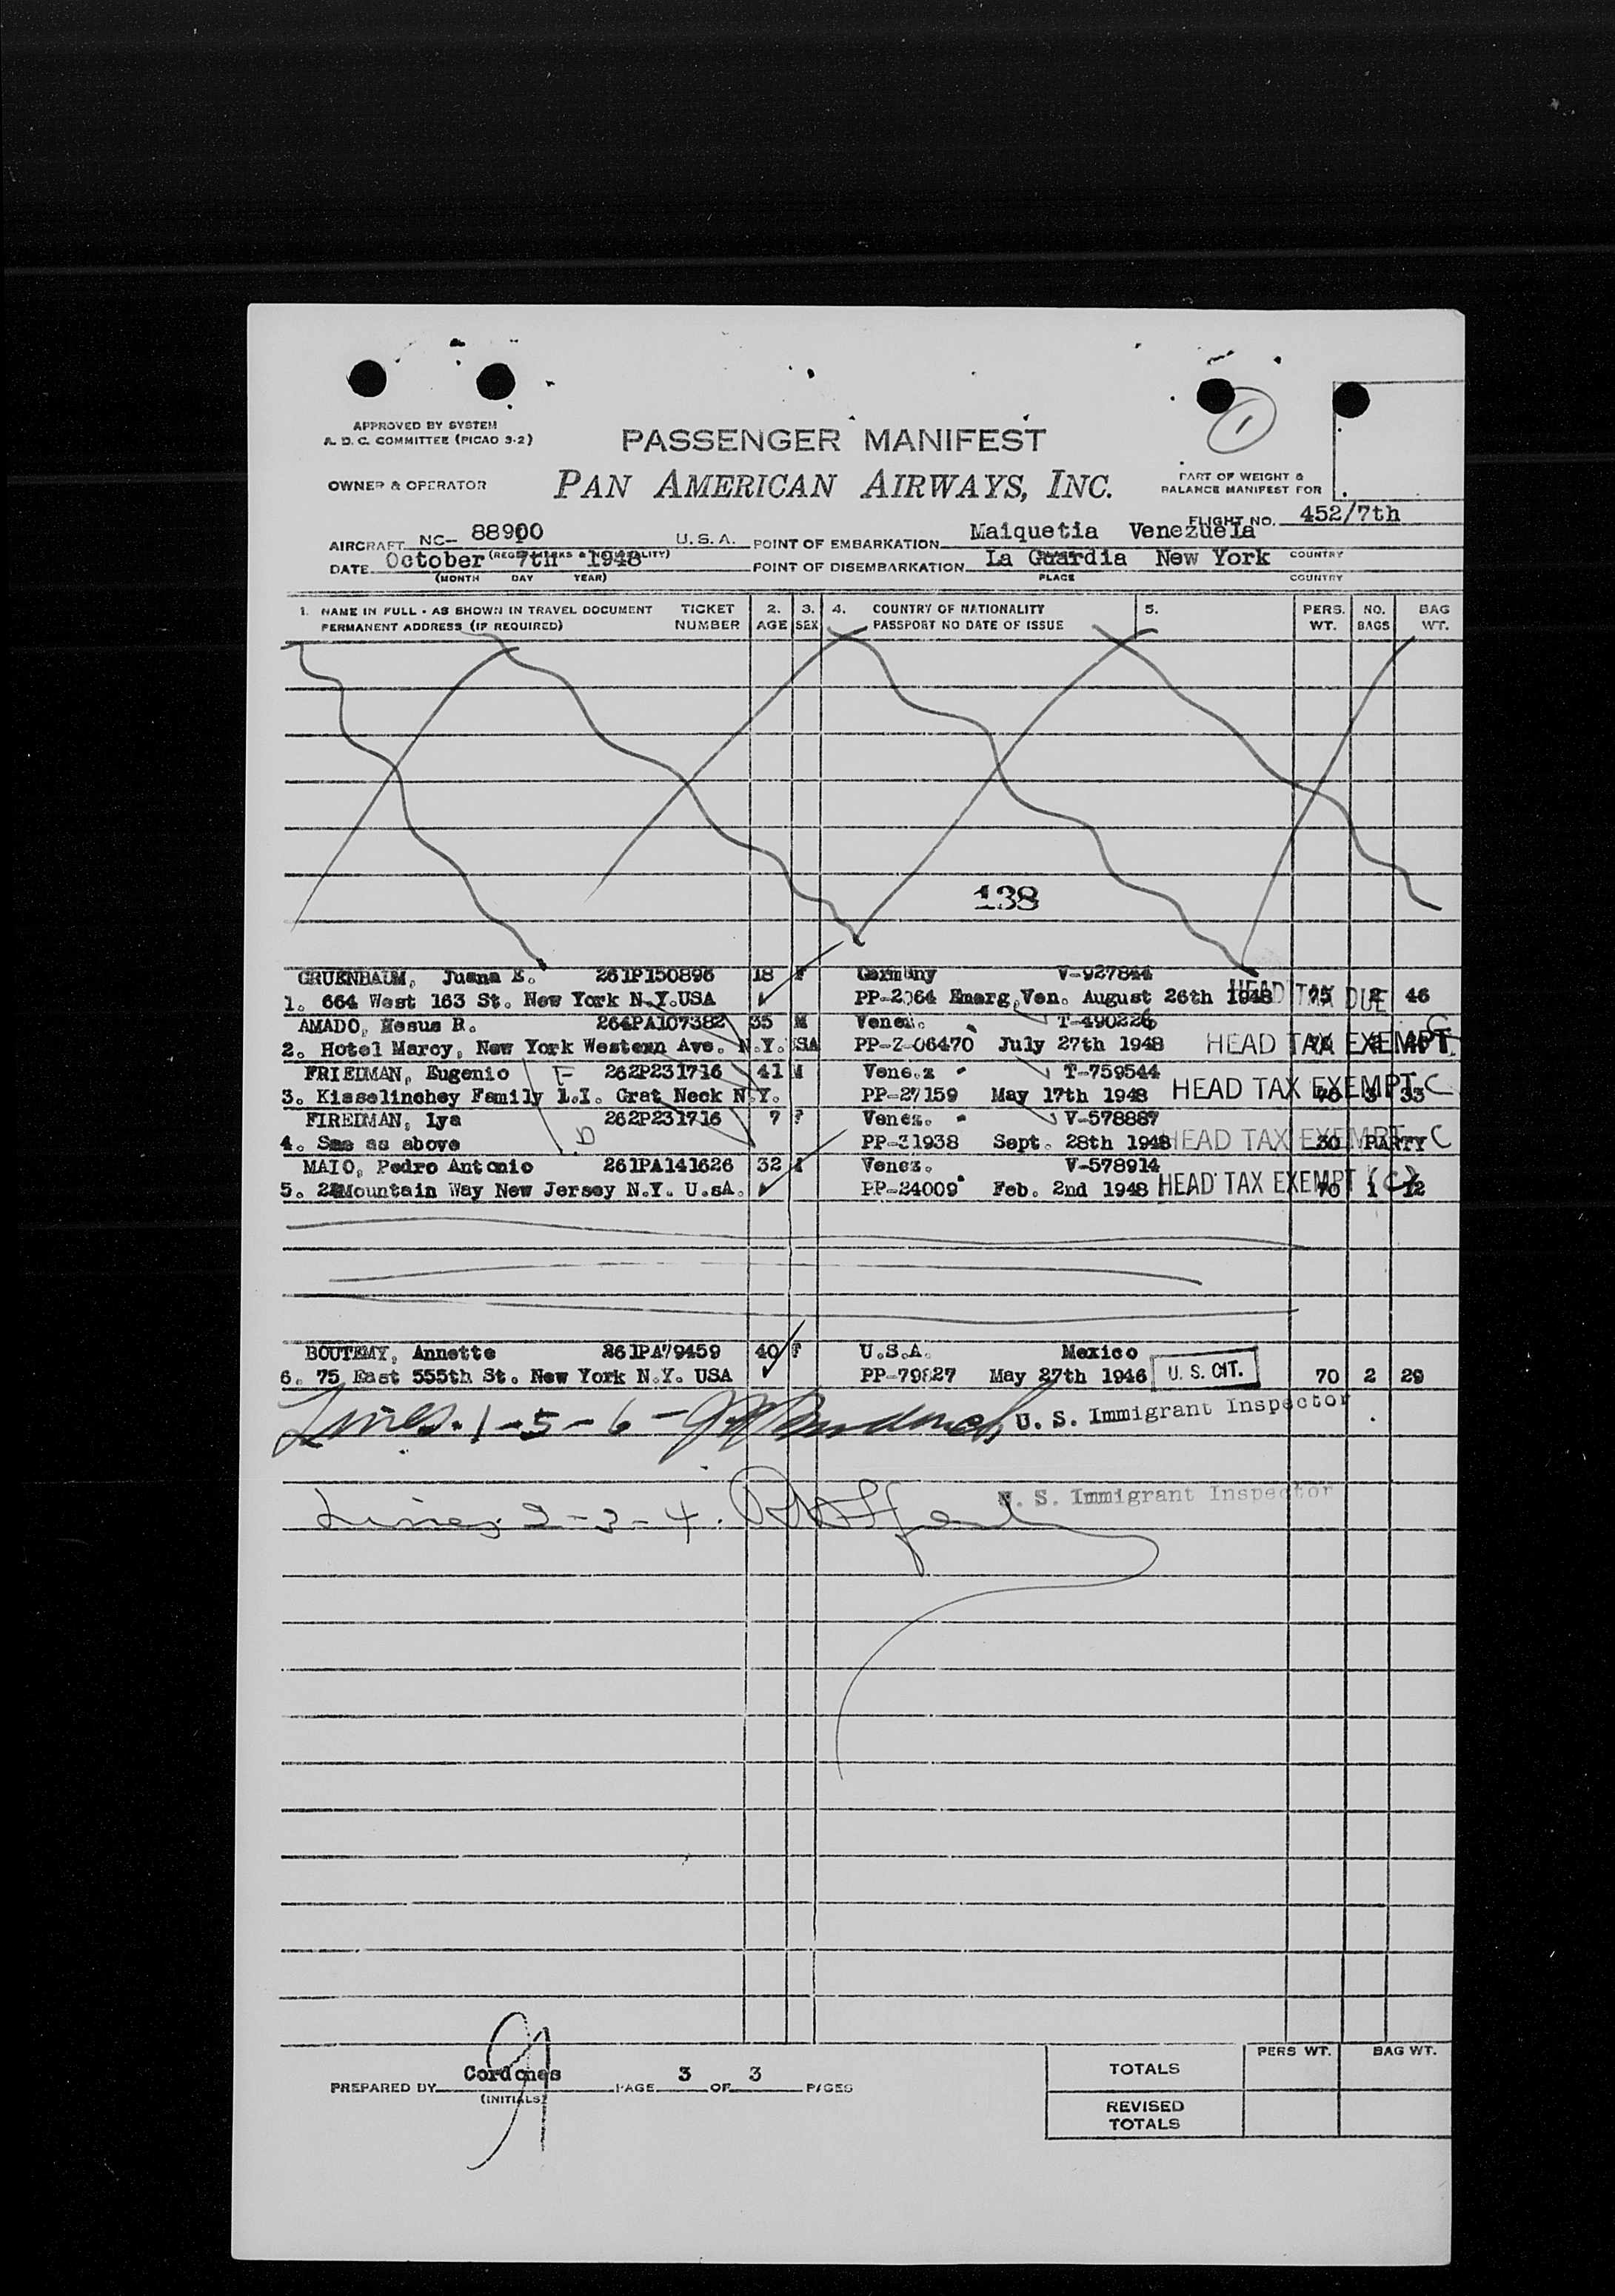 APPROVED BY SYSTEM
A. D. C. COMMITTEE (PICAO 3-2)
1
PASSENGER MANIFEST
OWNER & OPERATOR
PAN AMERICAN AIRWAYS, INC.
PART OF WEIGHT &
BALANCE MANIFEST FOR
FLIGHT NO. 452/7th
AIRCRAFT NC- 88900 U.S.A. POINT OF EMBARKATION Maiquetia Venezuela
(REGS. MARKS & NATIONALITY) COUNTRY
DATE October 7th 1948 POINT OF DISEMBARKATION La Guardia New York
(MONTH DAY YEAR) PLACE COUNTRY
1. NAME IN FULL - AS SHOWN IN TRAVEL DOCUMENT TICKET 2. 3. 4. COUNTRY OF NATIONALITY 5. PERS. NO. BAG
PERMANENT ADDRESS (IF REQUIRED) NUMBER AGE SEX PASSPORT NO DATE OF ISSUE WT. BAGS WT.
138
GRUENBAUM, Juana E. 261P150896 18 F Germany V-927844
1. 664 West 163 St. New York N.Y.USA PP-2064 Emerg.Ven. August 26th 1948 HEAD TAX DUE 75 2 46
AMADO, Hesus R. 264PA107382 35 M Venez. T-490226
2. Hotel Marcy, New York Western Ave. N.Y. USA PP-Z-06470 July 27th 1948 HEAD TAX EXEMPT C
FRIEDMAN, Eugenio F 262P231716 41 M Vene.z T-759544
3. Kisselinchey Family L.I. Grat Neck N.Y. PP-27159 May 17th 1948 HEAD TAX EXEMPT C 70 3 33
FIREDMAN, Lya 262P231716 7 F Venez. V-578887
4. Sme as above D PP-31938 Sept. 28th 1948 HEAD TAX EXEMPT C 30 PARTY
MAIO, Pedro Antonio 261PA141626 32 M Venez. V-578914
5. Mountain Way New Jersey N.Y. U.sA. PP-24009 Feb. 2nd 1948 HEAD TAX EXEMPT (C) 70 1 12
BOUTEMY, Annette 261PA79459 40 F U.S.A. Mexico
6. 75 East 555th St. New York N.Y. USA PP-79827 May 27th 1946 U. S. CIT. 70 2 29
Lines. 1-5-6- U. S. Immigrant Inspector
Lines 2-3-4. U. S. Immigrant Inspector
PREPARED BY Cordones PAGE 3 OF 3 PAGES
(INITIALS)
PERS WT. BAG WT.
TOTALS
REVISED
TOTALS